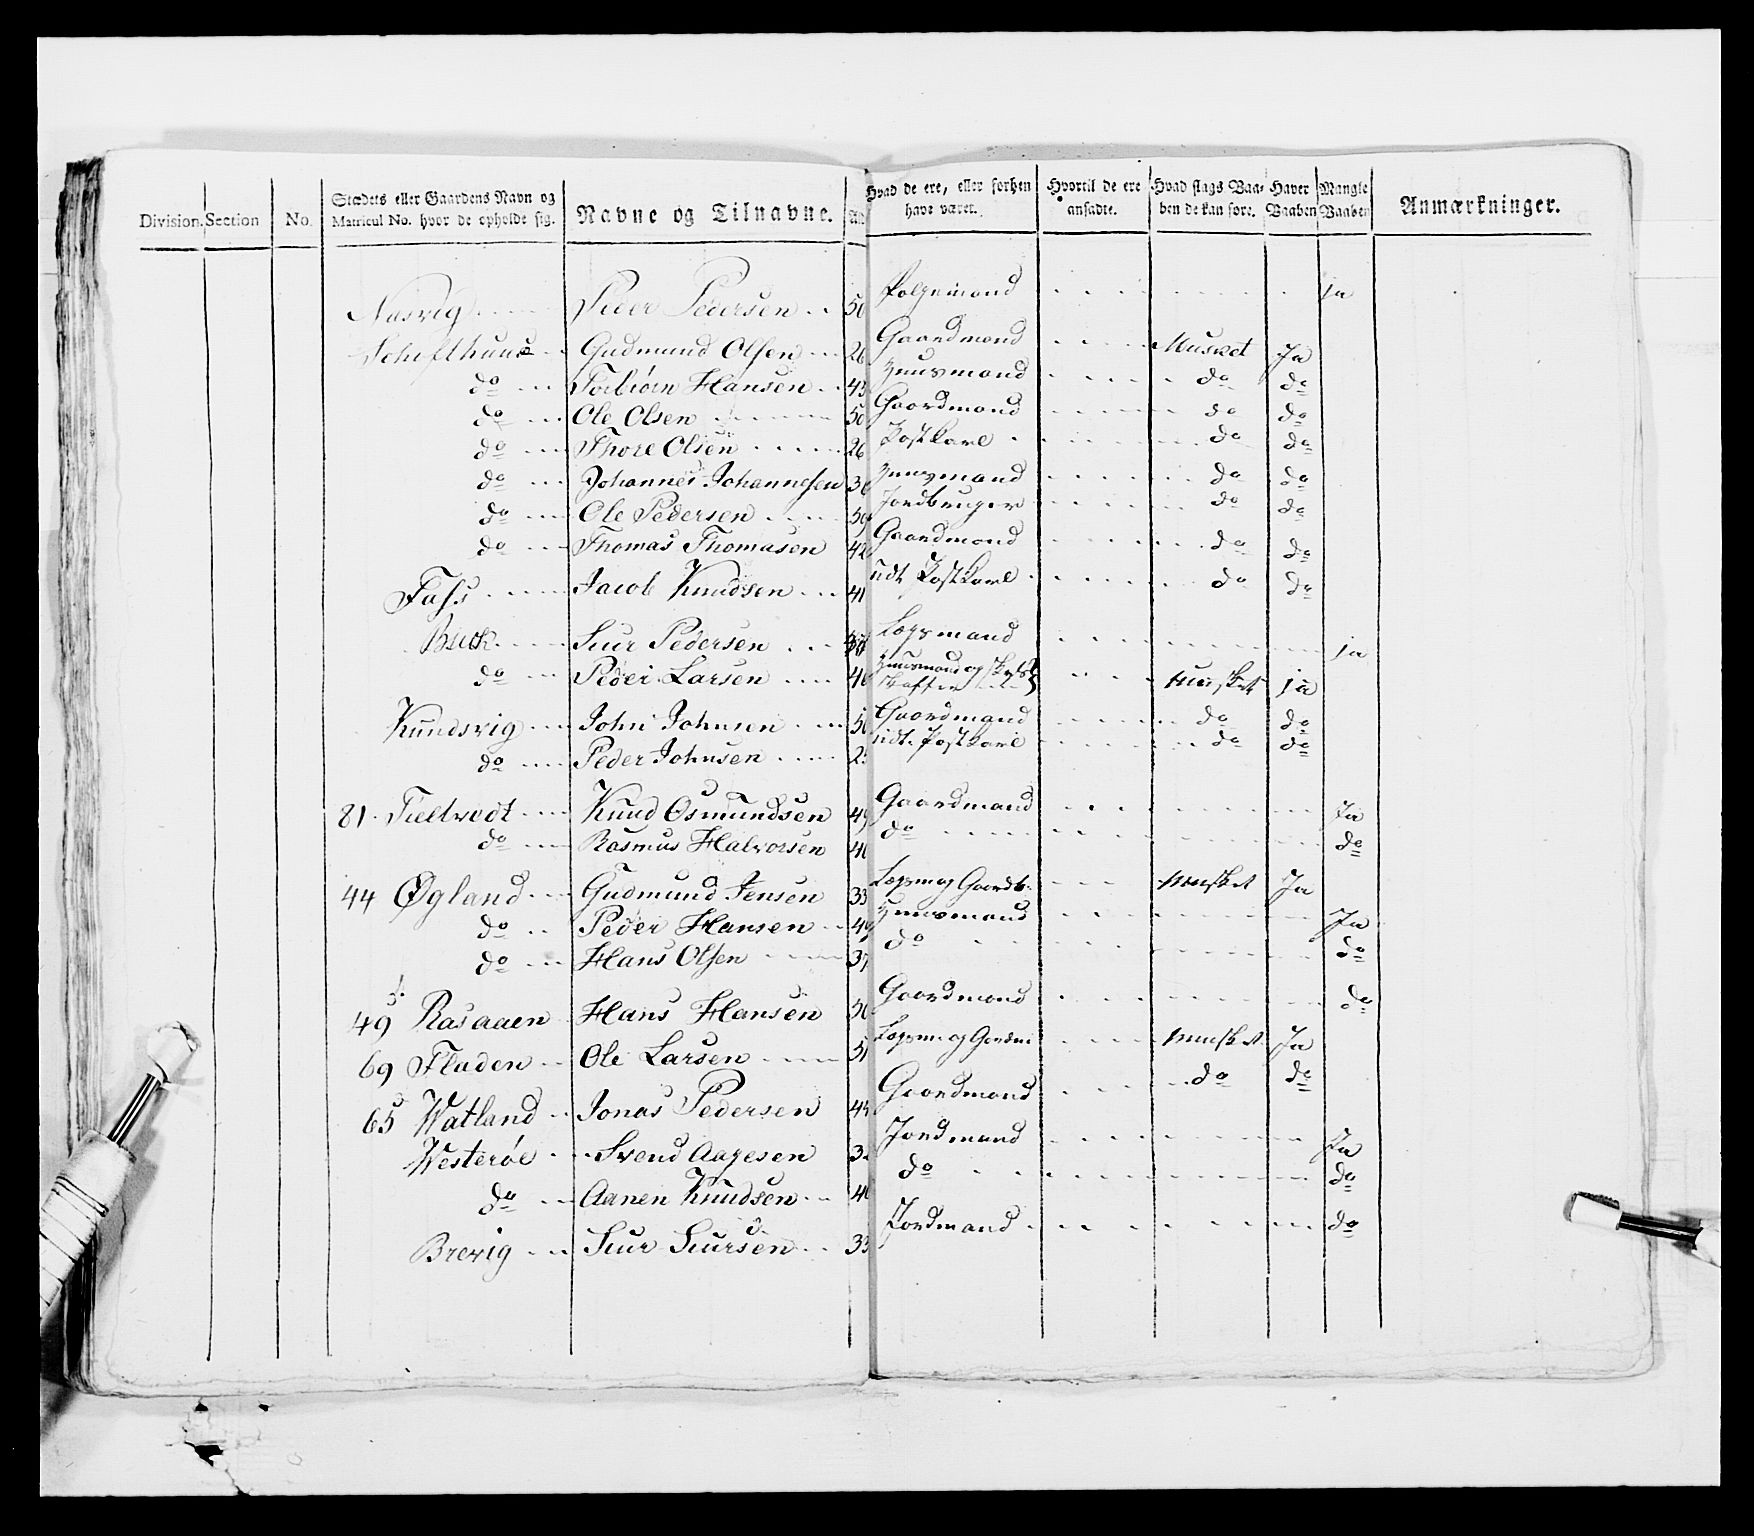 Division. Section No. Stædets eller Gaardens Navn og Matricul No. hvor de opholde sig. Navne og Tilnavne. Hvad de ere, eller forhen have været. Hvortil de ere ansadte. Hvad slags Vaaben de kan føre. Haver Vaaben Mangle Vaaben Anmærkninger.
Nasvig Peder Pedersen 50 ja
Gudmund Olsen 26 Gaardmand Musket Ja
do Torbiørn Hansen 43 Huusmand do do
do Ole Olsen 50 Gaardmand do do
do Thore Olsen 26 Postkarl do do
do Johannes Johannesen Huusmand do do
do Ole Pedersen 50 Jordbruger do do
do Thomas Thomasen 42 Gaardmand do do
Jacob Knudsen 41 udt. Postkarl do do
Siur Pedersen Logsmand ja
do Peder Larsen Huusmand og Musket ja
Knudsvig John Johnsen Gaardmand do do
do Peder Johnsen udt. Postkarl do do
81. Tieltvedt Knud Osmundsen 49 Gaardmand Ja
do Rasmus Halvorsen do do
44 Øgland Gudmund Jensen 33 Logsm og Gaardb. Musket Ja
do Peder Hansen 49 Huusmand Ja
do Hans Olsen 37 do do
49 Rasaaen Hans Hansen Gaardmand do
69 Fladen Ole Larsen 51 Logsm og Gaardm Musket Ja
65 Watland Jonas Pedersen Gaardmand do do
Westerøe Svend Aagesen Jordmand Ja
do Aanen Knudsen do do
Brevig Siur Siursen 33 Jordmand do